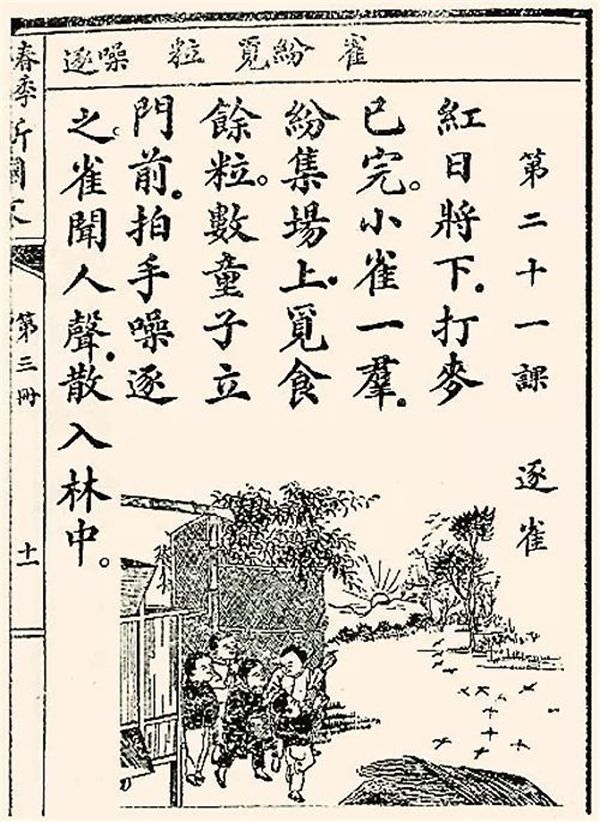 雀 紛覓 粒 噪逐
第二十一課 逐雀
紅日將下。打麥
已完。小雀一羣。
紛集場上。覓食
餘粒。數童子立
門前。拍手噪逐
之。雀聞人聲。散入林中。
春季新國文 第三冊 十一